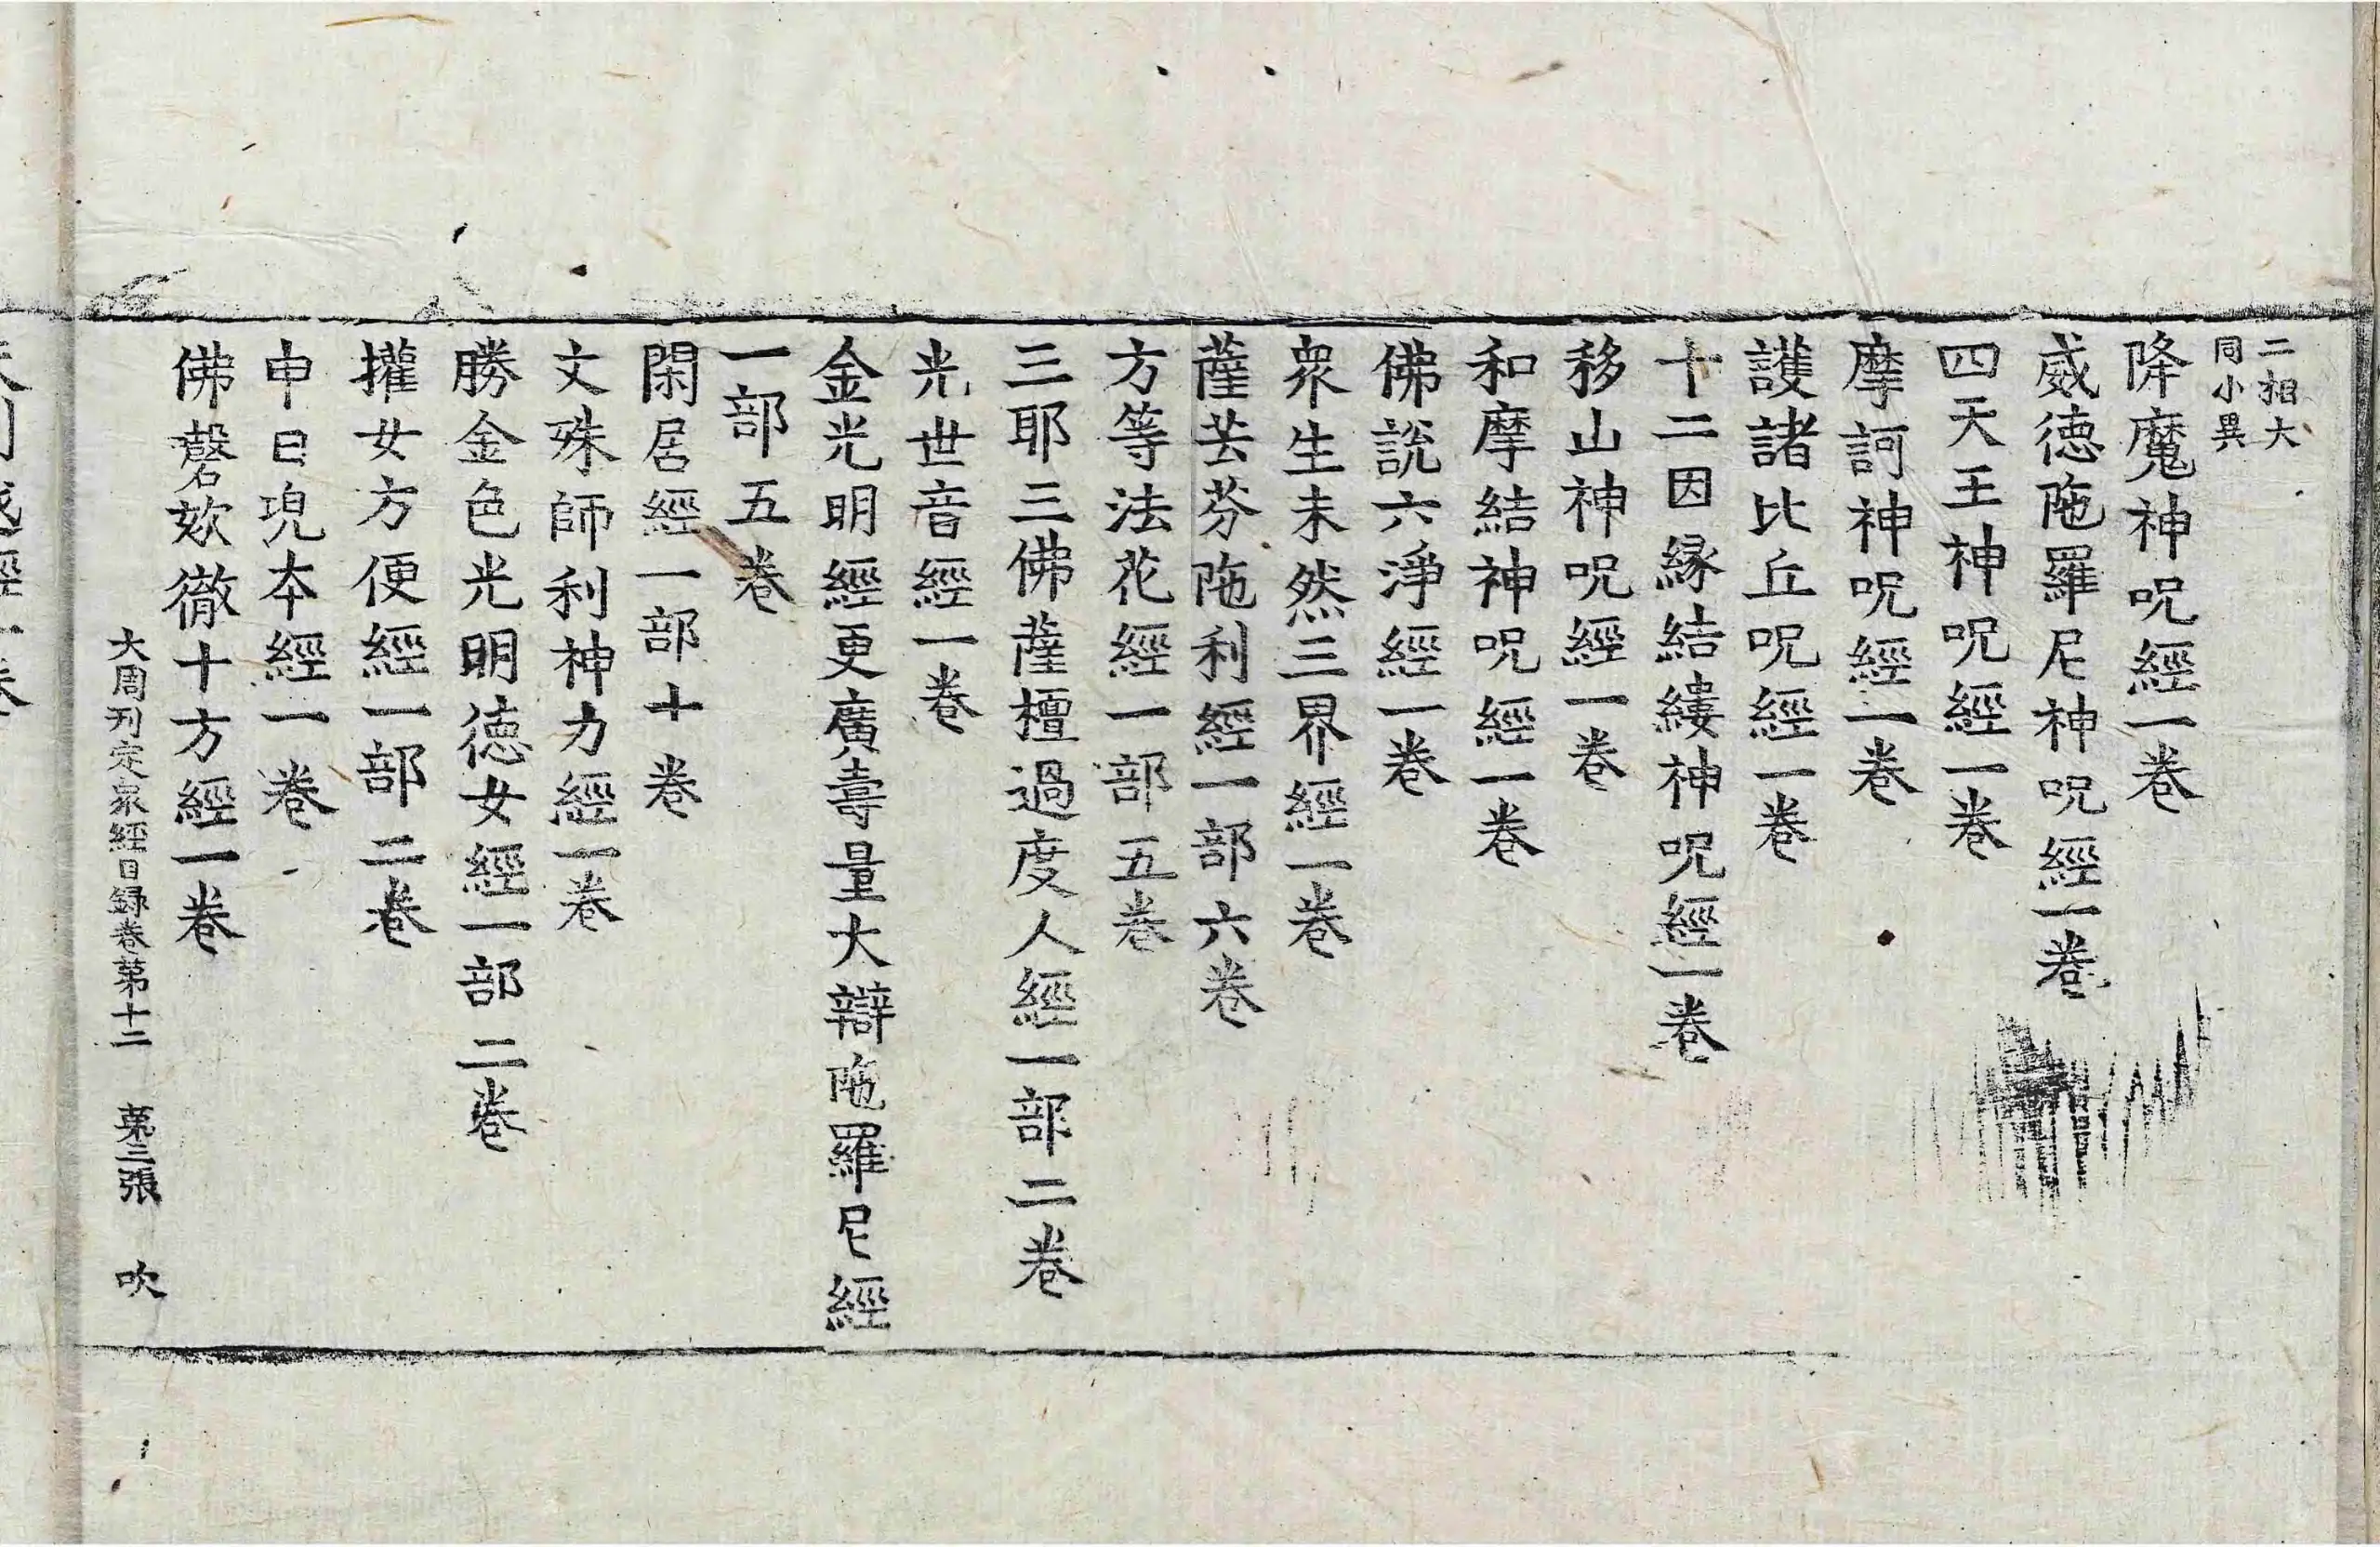 二相大
同小異
降魔神呪經一卷
威德陁羅尼神呪經一卷
四天王神呪經一卷
摩訶神呪經一卷
護諸比丘呪經一卷
十二因緣結縷神呪經一卷
移山神呪經一卷
和摩結神呪經一卷
佛說六淨經一卷
衆生未然三界經一卷
薩芸芬陁利經一部六卷
方等法花經一部五卷
三耶三佛薩檀過度人經一部二卷
光世音經一卷
金光明經更廣壽量大辯陁羅尼經
一部五卷
閑居經一部十卷
文殊師利神力經一卷
勝金色光明德女經一部二卷
權女方便經一部二卷
申日兜本經一卷
佛謦欬徹十方經一卷
大周刋定衆經目録卷第十二 第三張 吹